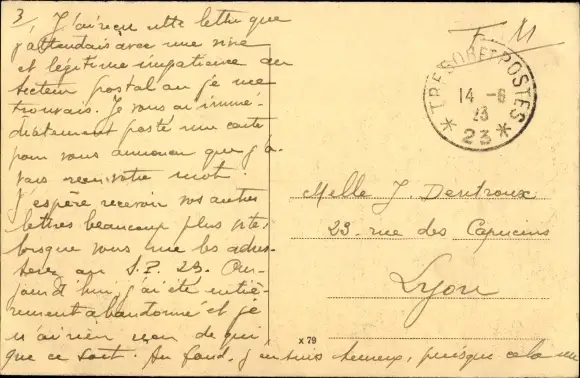 3/ J'ai reçu cette lettre que
j'attendais avec une vive
et légitime impatience au
secteur postal où je me
trouvais. Je vous ai immé-
diatement posté une carte
pour vous annoncer que j'a-
vais reçu votre mot.
J'espère recevoir vos autres
lettres beaucoup plus vite,
lorsque vous me les adres-
serez au S.P. 23. Au-
jourd'hui j'ai été entiè-
rement abandonné et je
n'ai rien reçu de qui
que ce soit. Au fond, j'en suis heureux, puisque cela me
F. M
TRESOR ET POSTES
14 -6
23
* 23 *
Melle J. Dentroux
23. rue des Capucins
Lyon
x 79